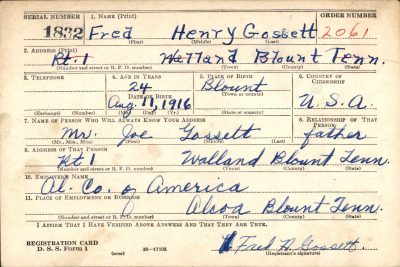 SERIAL NUMBER 1. NAME (Print) ORDER NUMBER
1832 Fred Henry Gossett 2061
(First) (Middle) (Last)
2. ADDRESS (Print)
Rt. 1 Walland Blount Tenn.
(Number and street or R. F. D. number) (Town) (County) (State)
3. TELEPHONE 4. AGE IN YEARS 5. PLACE OF BIRTH 6. COUNTRY OF CITIZENSHIP
24 Blount
DATE OF BIRTH (Town or county)
Aug. 11, 1916 U.S.A.
(Exchange) (Number) (Mo.) (Day) (Yr.) (State or country)
7. NAME OF PERSON WHO WILL ALWAYS KNOW YOUR ADDRESS 8. RELATIONSHIP OF THAT PERSON
Mr. Joe Gossett father
(Mr., Mrs., Miss) (First) (Middle) (Last)
9. ADDRESS OF THAT PERSON
Rt 1 Walland Blount Tenn.
(Number and street or R. F. D. number) (Town) (County) (State)
10. EMPLOYER'S NAME
Al. Co. of America
11. PLACE OF EMPLOYMENT OR BUSINESS
Alcoa Blount Tenn.
(Number and street or R. F. D. number) (Town) (County) (State)
I AFFIRM THAT I HAVE VERIFIED ABOVE ANSWERS AND THAT THEY ARE TRUE.
REGISTRATION CARD Fred H. Gossett
D. S. S. Form 1 (over) 16-17105 (Registrant's signature)